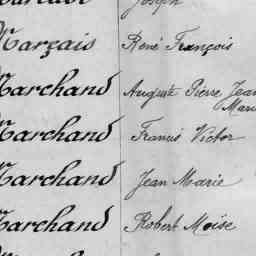 Joseph
Marçais René François
Marchand Auguste Pierre Jean
Marie
Marchand Francis Victor
Marchand Jean Marie
Marchand Robert Moïse